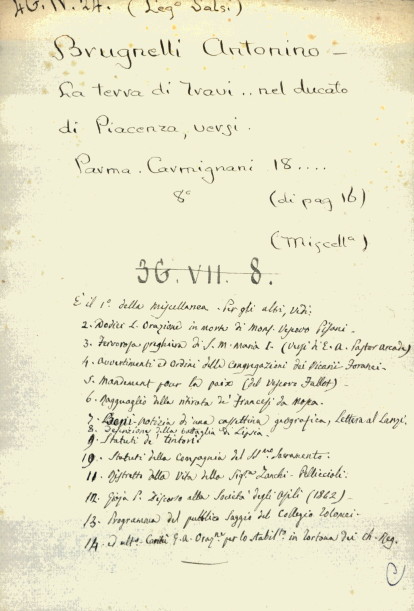 4G.IV.24. (Leg° Salsi)
Brugnelli Antonino –
La terra di Travi.. nel ducato
di Piacenza, versi.
Parma. Carmignani 18....
8° (di pag 16)
(Miscellª)
3G. VII. 8.
È il 1° della miscellanea. Per gli altri, vedi:
2. Dodici L. Orazione in morte di Mons. Vescovo Pisani.
3. Fervorosa preghiera di S. M. Maria I. (versi d'E. A. Pastor Arcade)
4. Avvertimenti ed Ordini delle Congregazioni dei Vicarii Foranei.
5. Mandement pour la paix (del Vescovo Fallot)
6. Ragguaglio della ritirata de' Francesi da
7. Notizia di una cassettina geografica, lettera al Lanzi.
8. Definizione della battaglia di Lipsia.
9. Statuti de' tintori
10. Statuti della Compagnia del SSmo Sacramento.
11. Ristretto della Vita della Sigra Zanchi-Pelliccioli.
12. Gioja P. Discorso alla Società degli Asili (1862) –
13. Programma del pubblico Saggio del Collegio
14. E. A. per lo stabilto in Tortona dei Ch. Reg.